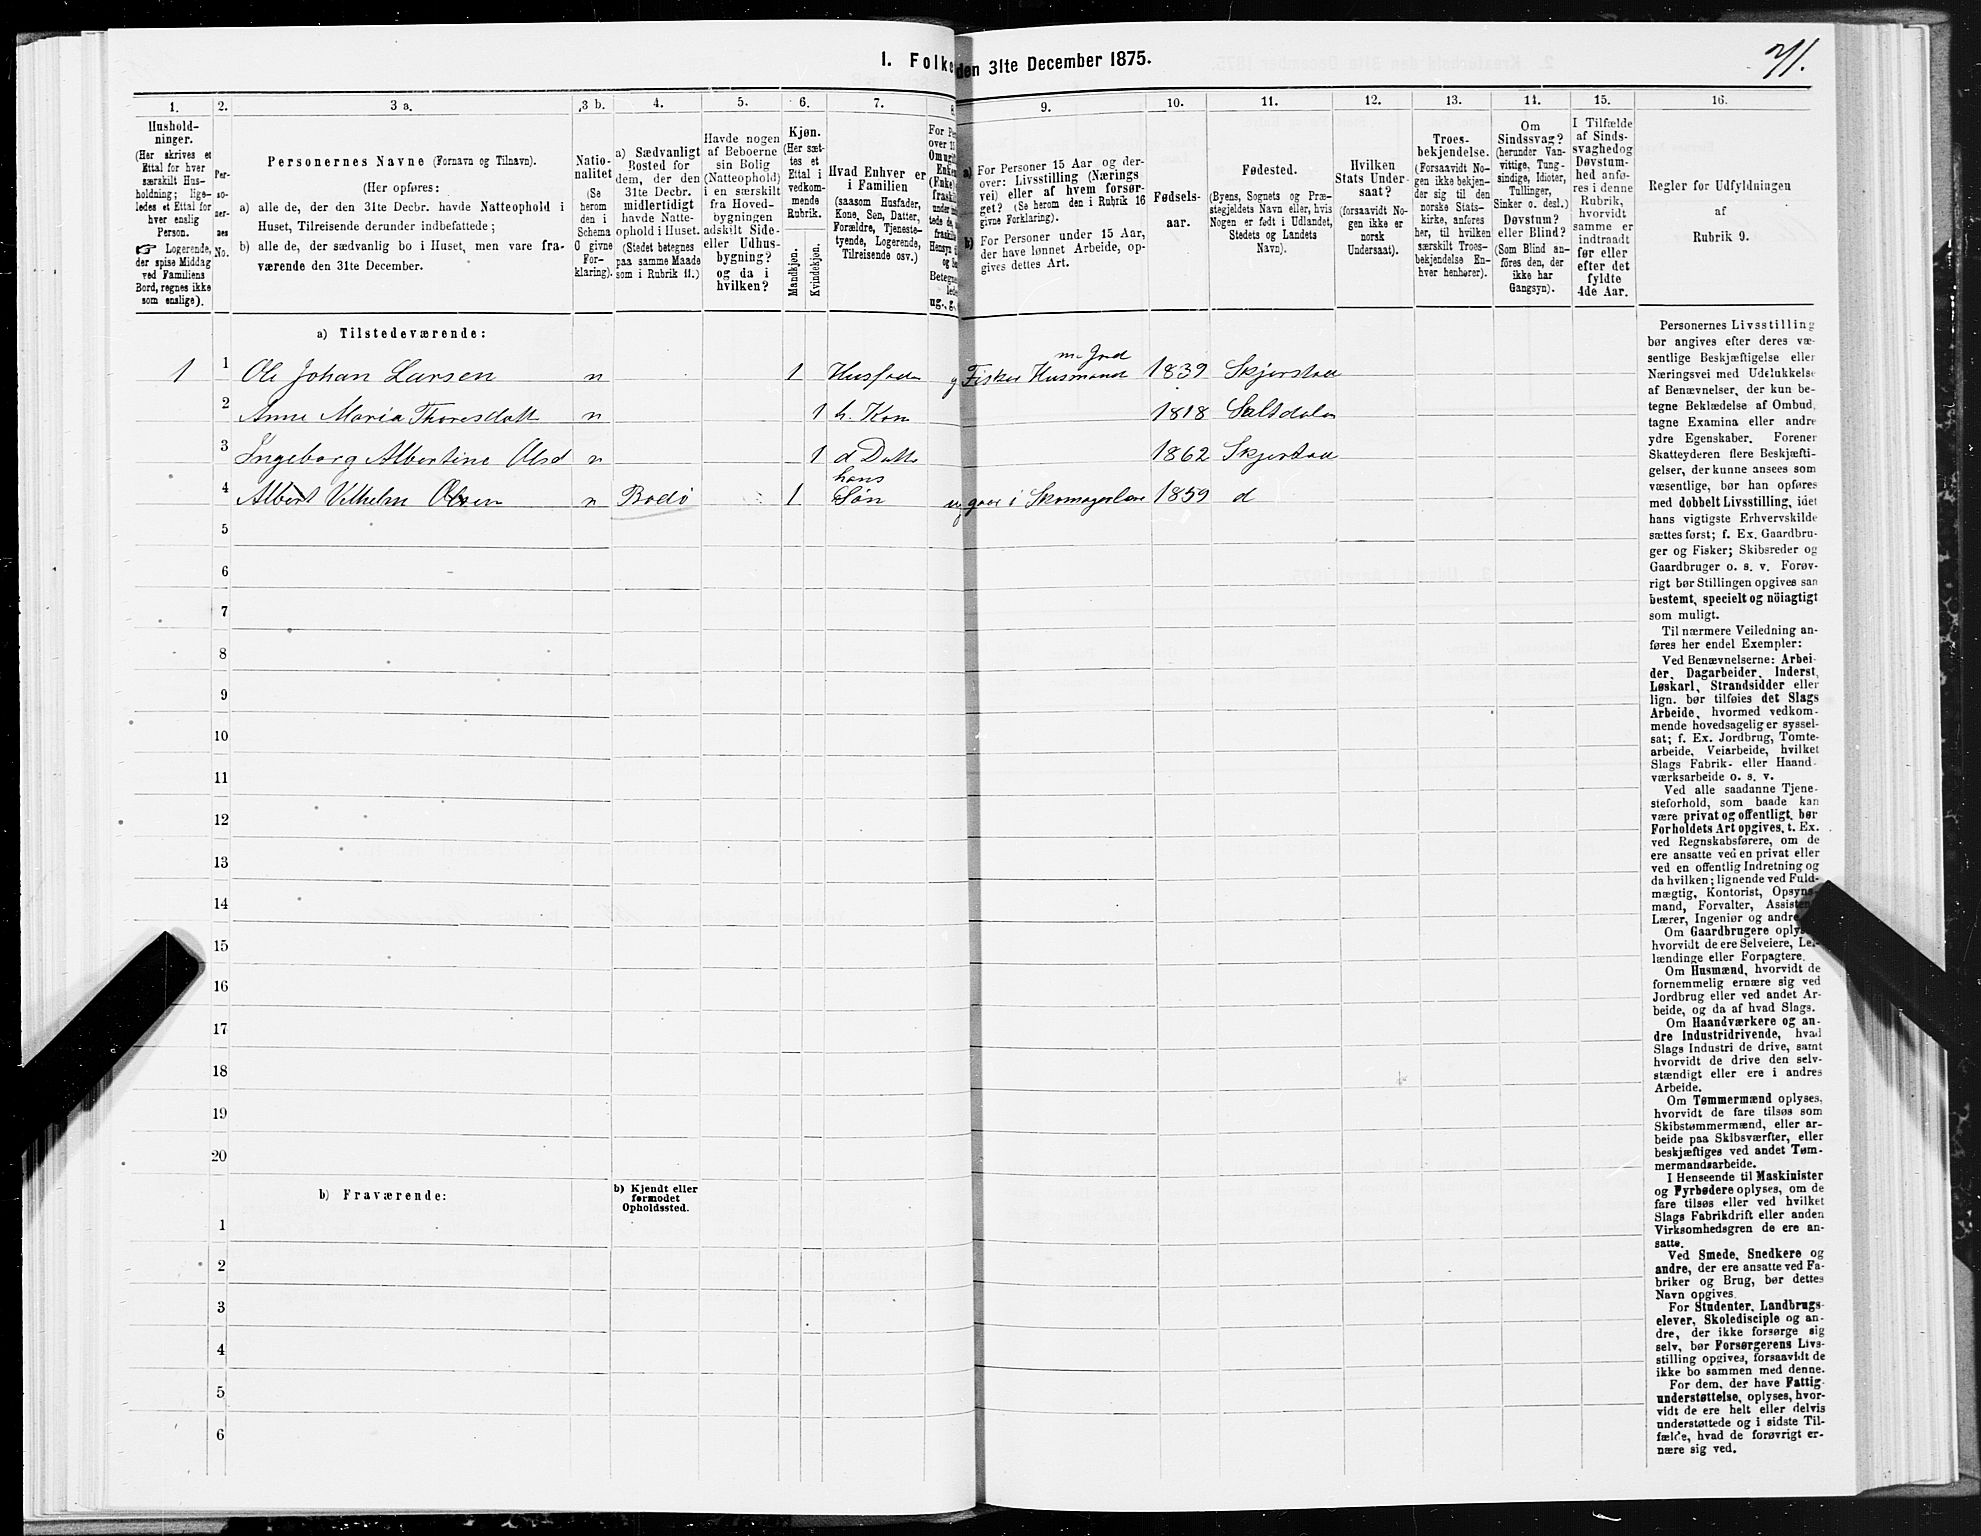 1. Folke
den 31te December 1875.
71.
1.
2.
3 a.
3 b.
4.
5.
6.
7.
8
9.
10.
11.
12.
13.
14.
15.
16.
Hushold-
ninger.
(Her skrives et
Ettal for hver
særskilt Hus-
holdning; lige-
ledes et Ettal for
hver enslig
Person.
☞ Logerende,
der spise Middag
ved Familiens
Bord, regnes ikke
som enslige).
Per-
so-
ner-
nes
No.
Personernes Navne (Fornavn og Tilnavn).
(Her opføres:
a) alle de, der den 31te Decbr. havde Natteophold i
Huset, Tilreisende derunder indbefattede;
b) alle de, der sædvanlig bo i Huset, men vare fra-
værende den 31te December.
Natio-
nalitet
(Se
herom
den i
Schema
O givne
For-
klaring).
a) Sædvanligt
Bosted for
dem, der den
31te Decbr.
midlertidigt
havde Natte-
ophold i Huset.
(Stedet betegnes
paa samme Maade
som i Rubrik 11.)
Havde nogen
af Beboerne
sin Bolig
(Natteophold)
i en særskilt
fra Hoved-
bygningen
adskilt Side-
eller Udhus-
bygning?
og da i
hvilken?
Kjøn.
(Her sæt-
tes et
Ettal i
vedkom-
mende
Rubrik.
Mandkjøn.
Kvindekjøn.
Hvad Enhver er
i Familien
(saasom Husfader,
Kone, Søn, Datter,
Forældre, Tjeneste-
tyende, Logerende,
Tilreisende osv.)
For Per
over 15
Omugift
Enkem
(Enke)
fraskilt
under ind
tede de,
fraskilte
Hensyn t
og Se
Betegne
lede
ug., g.,
a) For Personer 15 Aar og der-
over: Livsstilling (Nærings
vei) eller af hvem forsør-
get? (Se herom den i Rubrik 16
givne Forklaring).
b) For Personer under 15 Aar,
der have lønnet Arbeide, op-
gives dettes Art.
Fødsels-
aar.
Fødested.
(Byens, Sognets og Præ-
stegjeldets Navn eller, hvis
Nogen er født i Udlandet,
Stedets og Landets
Navn).
Hvilken
Stats Under-
saat?
(forsaavidt No-
gen ikke er
norsk
Undersaat).
Troes-
bekjendelse.
(Forsaavidt No-
gen ikke bekjen-
der sig til den
norske Stats-
kirke, anføres
her, til hvilken
særskilt Troes-
bekjendelse En-
hver henhører).
Om
Sindssvag?
(herunder Van-
vittige, Tung-
sindige, Idioter,
Tullinger,
Sinker o. desl.)
Døvstum?
eller Blind?
(Som Blind an-
föres den, der
ikke har
Gangsyn).
I Tilfælde
af Sinds-
svaghedog
Døvstum-
hed anfø-
res i denne
Rubrik,
hvorvidt
samme er
indtraadt
før eller
efter det
fyldte
4de Aar.
Regler for Udfyldningen
af
Rubrik 9.
a) Tilstedeværende:
1 1 Ole Johan Larsen n 1 Husfade g Fisker Husmand m Jord 1839 Skjerstad
2 Anne Maria Thoresdatt n 1 h. Kon 1818 Saltdalen
3 Ingeborg Albertine Olsd n 1 d Datte 1862 Skjerstad
4 Albert Vilhelm Olsen n Bodö 1 hans Søn ug gaar i Skomagerlære 1859 d
5
6
7
8
9
10
11
12
13
14
15
16
17
18
19
20
b) Fraværende:
b) Kjendt eller
formodet
Opholdssted.
1
2
3
4
5
6
Personernes Livsstilling
bør angives efter deres væ-
sentlige Beskjæftigelse eller
Næringsvei med Udelukkelse
af Benævnelser, der kun be-
tegne Beklædelse af Ombud,
tagne Examina eller andre
ydre Egenskaber. Forener
Skatteyderen flere Beskjæfti-
gelser, der kunne ansees som
væsentlige, bør han opføres
med dobbelt Livsstilling, idet
hans vigtigste Erhvervskilde
sættes først; f. Ex. Gaardbru-
ger og Fisker; Skibsreder og
Gaardbruger o. s. v. Forøv-
rigt bør Stillingen opgives saa
bestemt, specielt og nöiagtigt
som muligt.
Til nærmere Veiledning an-
føres her endel Exempler:
Ved Benævnelserne: Arbei-
der, Dagarbeider, Inderst,
Løskarl, Strandsidder eller
lign. bør tilføies det Slags
Arbeide, hvormed vedkom-
mende hovedsagelig er syssel-
sat; f. Ex. Jordbrug, Tomte-
arbeide, Veiarbeide, hvilket
Slags Fabrik- eller Haand-
værksarbeide o. s. v.
Ved alle saadanne Tjene-
steforhold, som baade kan
være privat og offentligt, bør
Forholdets Art opgives, t. Ex.
ved Regnskabsførere, om de
ere ansatte ved en privat eller
ved en offentlig Indretning og
da hvilken; lignende ved Fuld-
mægtig, Kontorist, Opsyns-
mand, Forvalter, Assisten
Lærer, Ingeniør og andre
Om Gaardbrugere oplys
hvorvidt de ere Selveiere, Lei-
lændinge eller Forpagtere.
Om Husmænd, hvorvidt de
fornemmelig ernære sig ved
Jordbrug eller ved andet Ar-
beide, og da af hvad Slags.
Om Haandværkere og an-
dre Industridrivende, hvad
Slags Industri de drive, samt
hvorvidt de drive den selv-
stændigt eller ere i andres
Arbeide.
Om Tømmermænd oplyses,
hvorvidt de fare tilsøs som
Skibstømmermænd, eller ar-
beide paa Skibsværfter, eller
beskjæftiges ved andet Tøm-
mermandsarbeide.
I Henseende til Maskinister
og Fyrbødere oplyses, om de
fare tilsøs eller ved hvilket
Slags Fabrikdrift eller anden
Virksomhedsgren de ere an-
satte.
Ved Smede, Snedkere og
andre, der ere ansatte ved Fa-
briker og Brug, bør dettes
Navn opgives.
For Studenter, Landbrugs-
elever, Skoledisciple og an-
dre, der ikke forsørge sig
selv, bør Forsørgerens Livs-
stilling opgives, forsaavidt de
ikke bo sammen med denne.
For dem, der have Fattig-
understøttelse, oplyses, hvor-
vidt de ere helt eller delvis
understøttede og i sidste Til-
fælde, hvad de forøvrigt er-
nære sig ved.